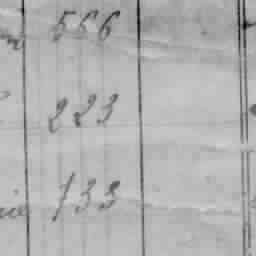 566
223
133